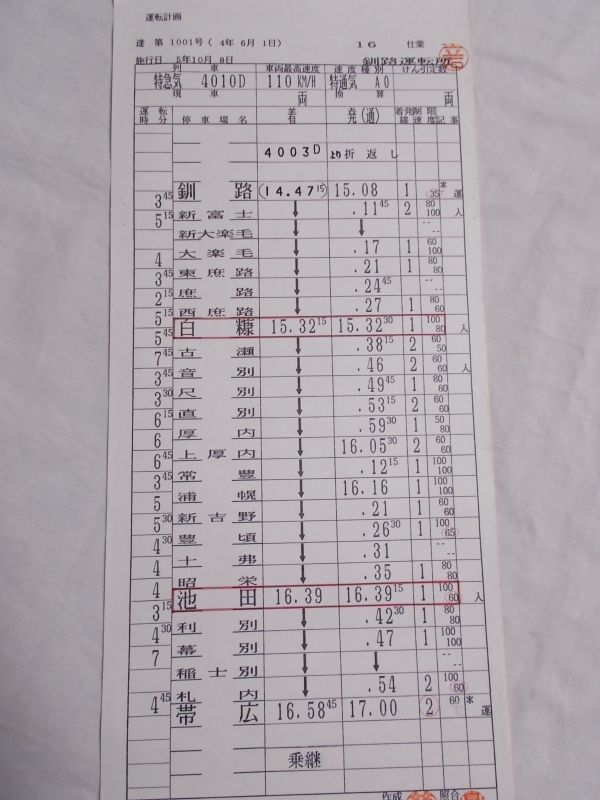 運転計画
達 第 1001号( 4年 6月 1日) 16 仕業
施行日 5年10月 8日 釧路運転所
列車 車両最高速度 速度種別 けん引定数
特急気 4010D 110 KM/H 特通気 A0
現車 両 換算 両
運転時分 停車場名 着有 発(通) 着発線 制限速度 記事
4003D より折返し
釧路 (14.47 15) 15.08 1 35 * 運
3 45
新富士 ↓ .11 45 2 80 100 入
5 15
新大楽毛 ↓ ↓ -- --
大楽毛 ↓ .17 1 60 100
4
東庶路 ↓ .21 1 80 80
3 45
庶路 ↓ .24 45 -- --
2 15
西庶路 ↓ .27 1 80 60
5 15
白糠 15.32 15 15.32 30 1 100 80 入
5 45
古瀬 ↓ .38 15 2 60 50
7 45
音別 ↓ .46 2 80 60 入
3 45
尺別 ↓ .49 45 1 60 80
3 30
直別 ↓ .53 15 2 60 60
6 15
厚内 ↓ .59 30 1 50 80
6
上厚内 ↓ 16.05 30 2 60 60
6 45
常豊 ↓ .12 15 1 100 100
3 45
浦幌 ↓ 16.16 1 100 100
5
新吉野 ↓ .21 1 60 60
5 30
豊頃 ↓ .26 30 1 100 65
4 30
十弗 ↓ .31 -- --
4
昭栄 ↓ .35 1 80 80
4
池田 16.39 16.39 15 1 100 60 入
3 15
利別 ↓ .42 30 1 80 80
4 30
幕別 ↓ .47 1 100 100
7
稲士別 ↓ ↓ -- --
札内 ↓ .54 2 100 60
4 45
帯広 16.58 45 17.00 2 60 * 運
乗継
作成 照合